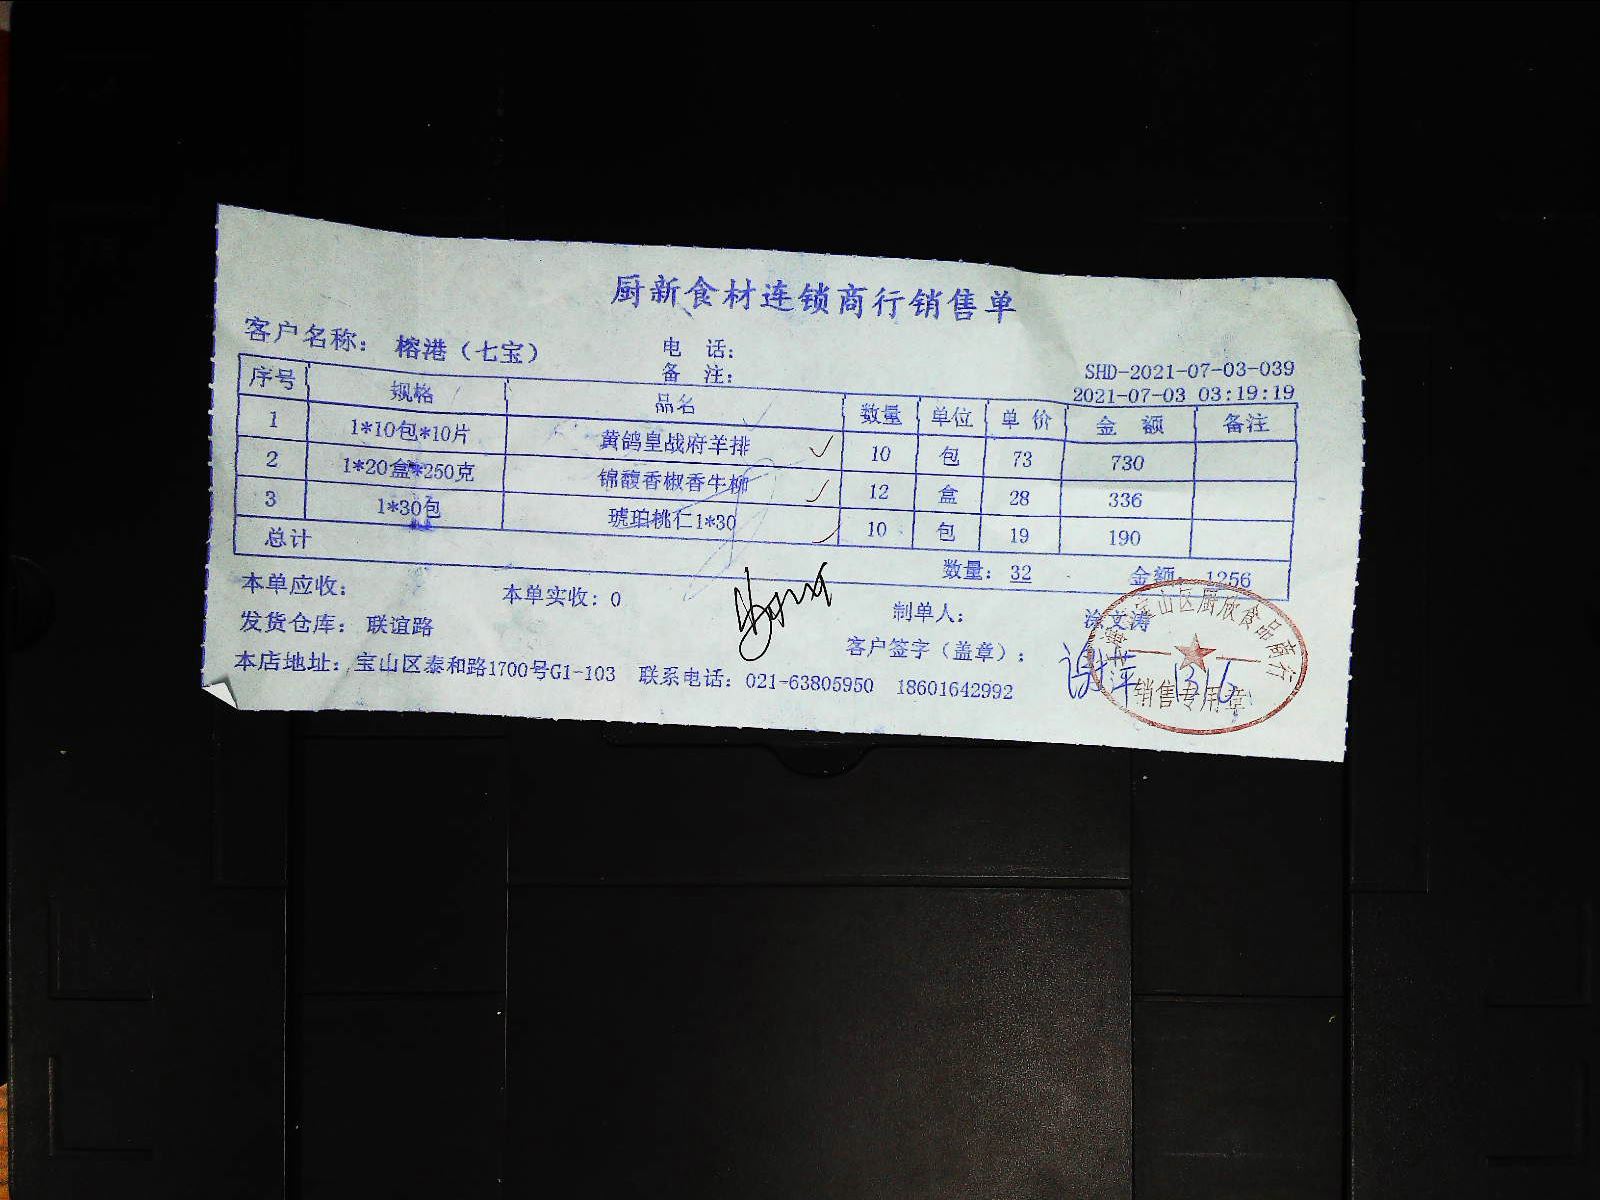 厨新食材连锁商行销售单
客户名称： 榕港（七宝） 电 话： SHD-2021-07-03-039
备 注： 2021-07-03 03:19:19
序号 规格 品名 数量 单位 单 价 金 额 备注
1 1*10包*10片 黄鸽皇战府羊排 10 包 73 730
2 1*20盒*250克 锦馥香椒香牛柳 12 盒 28 336
3 1*30包 琥珀桃仁1*30 10 包 19 190
总计 数量：32 金额：1256
本单应收： 本单实收：0 制单人： 涂文涛
发货仓库： 联谊路 客户签字（盖章）：
本店地址： 宝山区泰和路1700号G1-103 联系电话：021-63805950 18601642992
宝山区厨欣食品商行
销售专用章